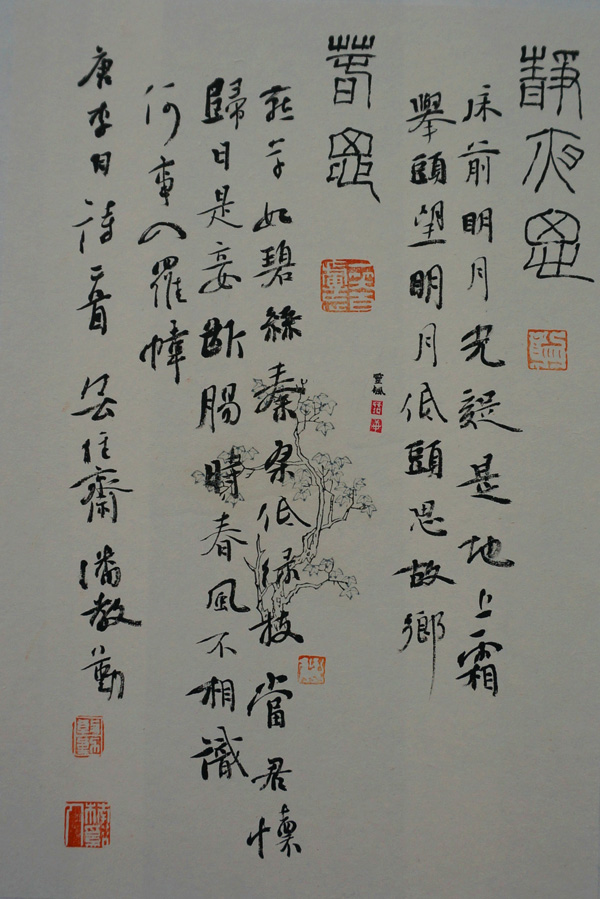 靜夜思
床前明月光疑是地上霜
舉頭望明月低頭思故鄉
春思
燕草如碧絲秦桑低綠枝當君懷
歸日是妾斷腸時春風不相識
何事入羅幃
唐李白詩二首 住齋 潘教勤